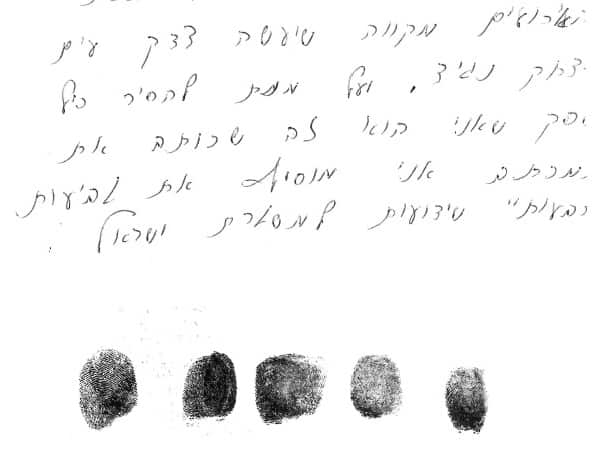 אירועים מקווה שיעשה צדק עים
צדוק נגיד, ועל מנת להסיר כיל
ספק שאני הוא זה שכותב את
מכתב אני מוסיף את טביעות
שידועות למשטרת ישראל.